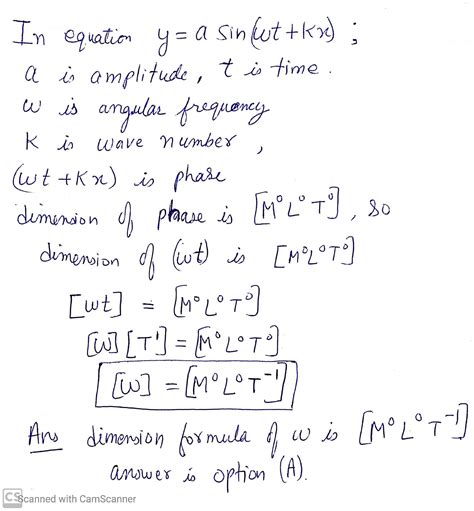 In equation y = a sin(ωt + kx) ;
a is amplitude, t is time.
ω is angular frequency
K is wave number,
(ωt + Kx) is phase
dimension of phase is [M⁰L⁰T⁰], so
dimension of (ωt) is [M⁰L⁰T⁰]
[ωt] = [M⁰L⁰T⁰]
[ω] [T¹] = [M⁰L⁰T⁰]
[ω] = [M⁰L⁰T⁻¹]
Ans dimension formula of ω is [M⁰L⁰T⁻¹]
answer is option (A).
CS Scanned with CamScanner